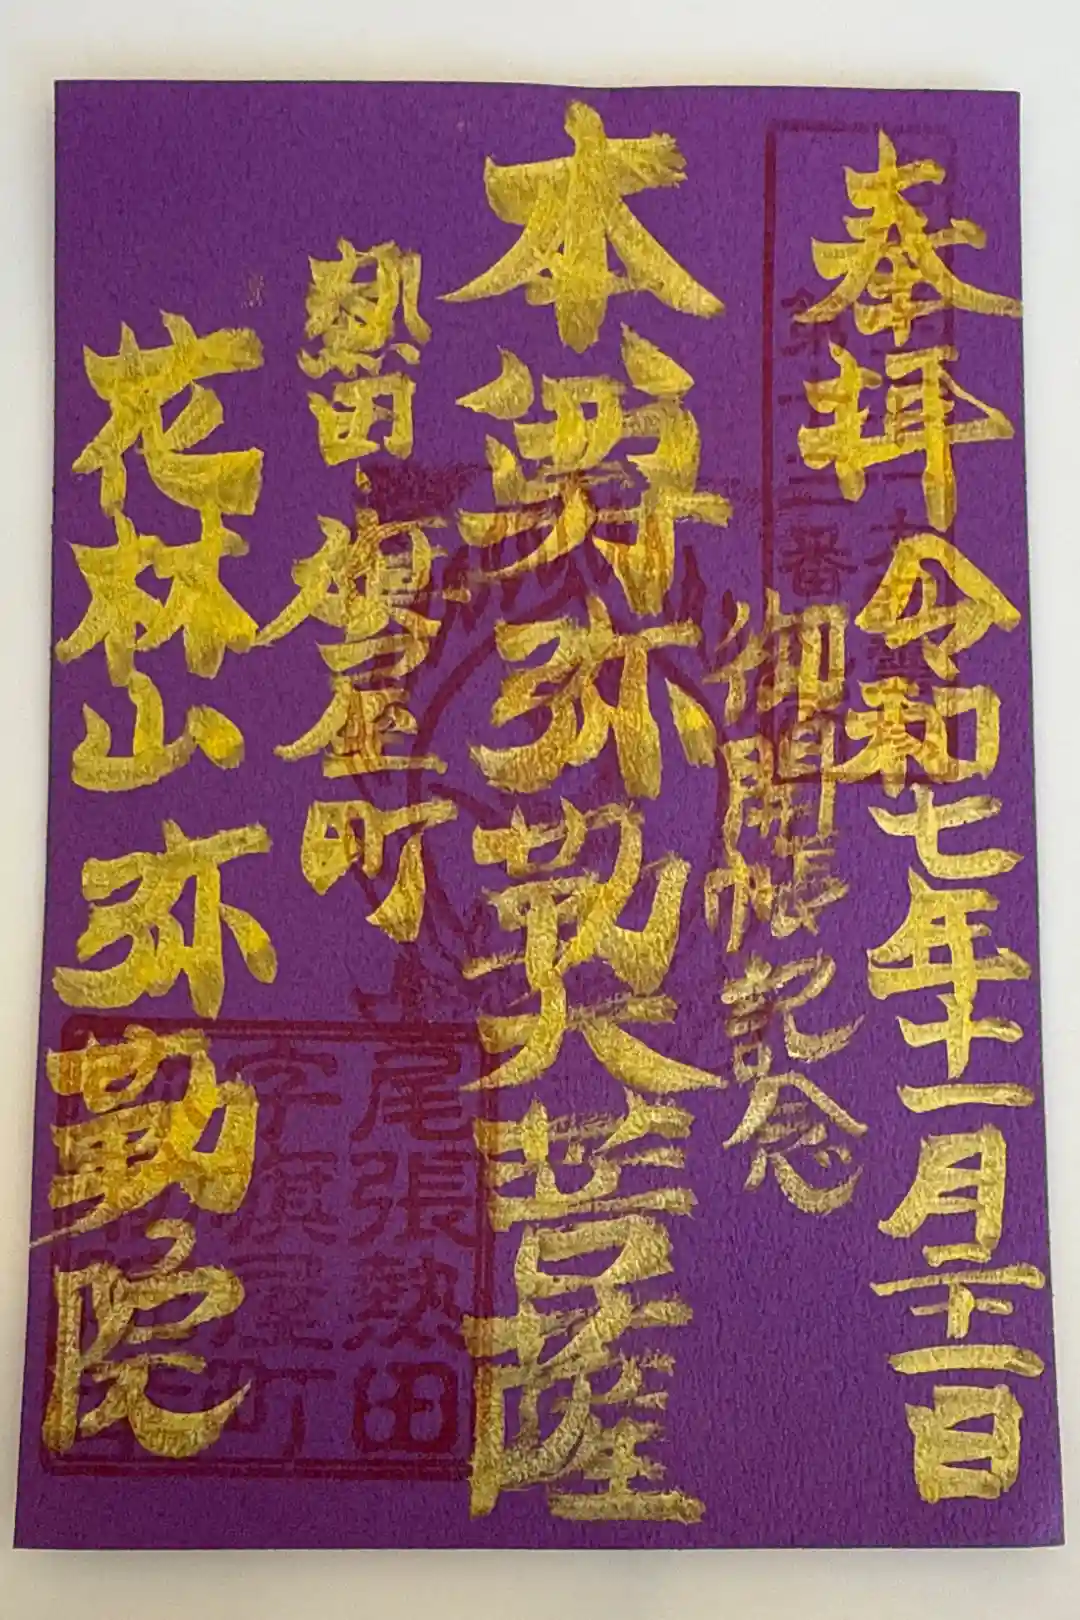 奉拝 令和七年十一月二十二日
御開帳記念
本尊 弥勒大菩薩
熱田 旗屋町
花林山 弥勒院
番
尾張熱田
字旗屋町